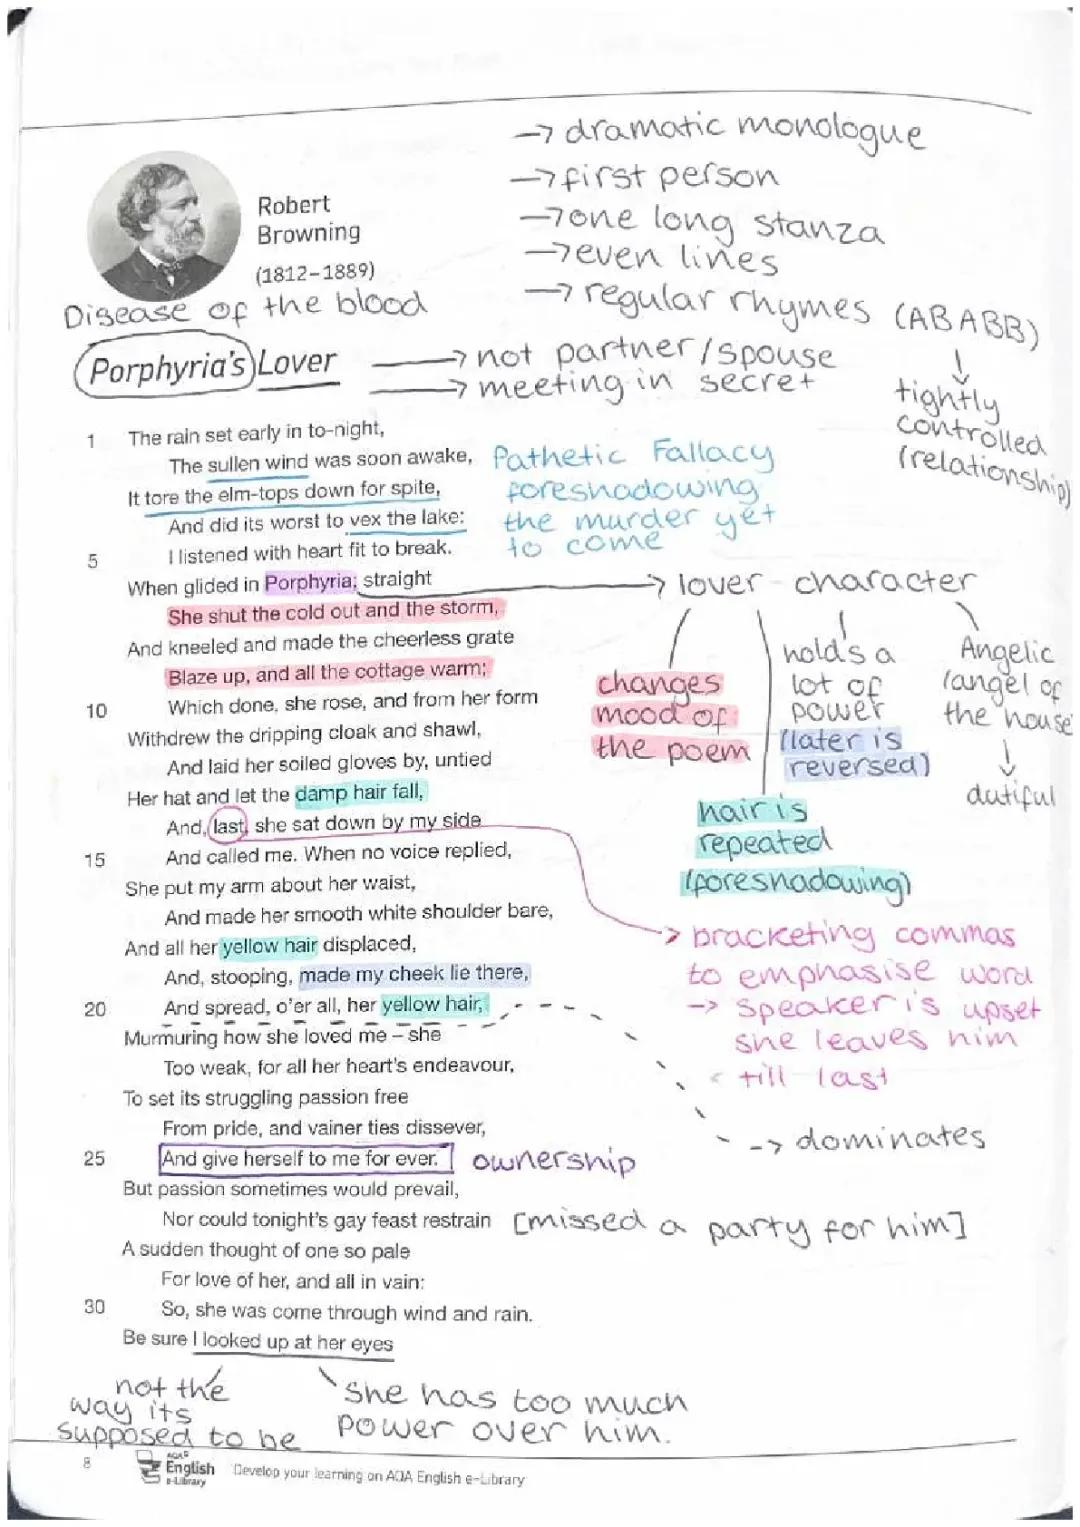 → dramatic monologue
→ first person
→ one long stanza
→ even lines
→ regular rhymes (ABABB)
↓
tightly
controlled
(relationship)
Robert
Browning
(1812–1889)
Disease of the blood
Porphyria's Lover
→ not partner/spouse
→ meeting in secret
1 The rain set early in to-night,
The sullen wind was soon awake,
It tore the elm-tops down for spite,
And did its worst to vex the lake:
5 I listened with heart fit to break.
Pathetic Fallacy
foreshadowing
the murder yet
to come
When glided in Porphyria; straight
She shut the cold out and the storm,
And kneeled and made the cheerless grate
Blaze up, and all the cottage warm;
10 Which done, she rose, and from her form
Withdrew the dripping cloak and shawl,
And laid her soiled gloves by, untied
Her hat and let the damp hair fall,
And, last, she sat down by my side
15 And called me. When no voice replied,
She put my arm about her waist,
And made her smooth white shoulder bare,
And all her yellow hair displaced,
And, stooping, made my cheek lie there,
20 And spread, o'er all, her yellow hair,
Murmuring how she loved me – she
Too weak, for all her heart's endeavour,
To set its struggling passion free
From pride, and vainer ties dissever,
25 And give herself to me for ever.
But passion sometimes would prevail,
Nor could tonight's gay feast restrain
A sudden thought of one so pale
For love of her, and all in vain:
30 So, she was come through wind and rain.
Be sure I looked up at her eyes
→ lover character
changes
mood of
the poem
holds a
lot of
power
(later is
reversed)
Angelic
(angel of
the house
↓
dutiful
hair is
repeated
(foreshadowing)
→ bracketing commas
to emphasise word
→ speaker is upset
she leaves him
till last
→ dominates
ownership
[missed a party for him]
not the
way its
supposed to be
she has too much
power over him.
8
AQA
English
e-Library
Develop your learning on AQA English e-Library